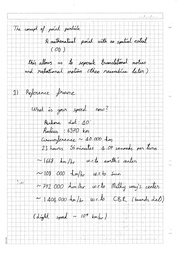 The concept of point particle
A mathematical point with no spatial extent
(0D)
this allows us to separate translational motion
and rotational motion (other resources later)
II Reference frame
What is your speed now?
Radius : 6370 km
Circumference ~ 40 000 km
23 hours 56 minutes 4.09 seconds per turn
~ 1668 km/hr w.r.to earth's center
~ 108 000 km/hr w.r.to sun
~ 792 000 km/hr w.r.to Milky way's center
km/hr w.r.to C.B.R.
(light speed ~ 10⁹ km/hr)